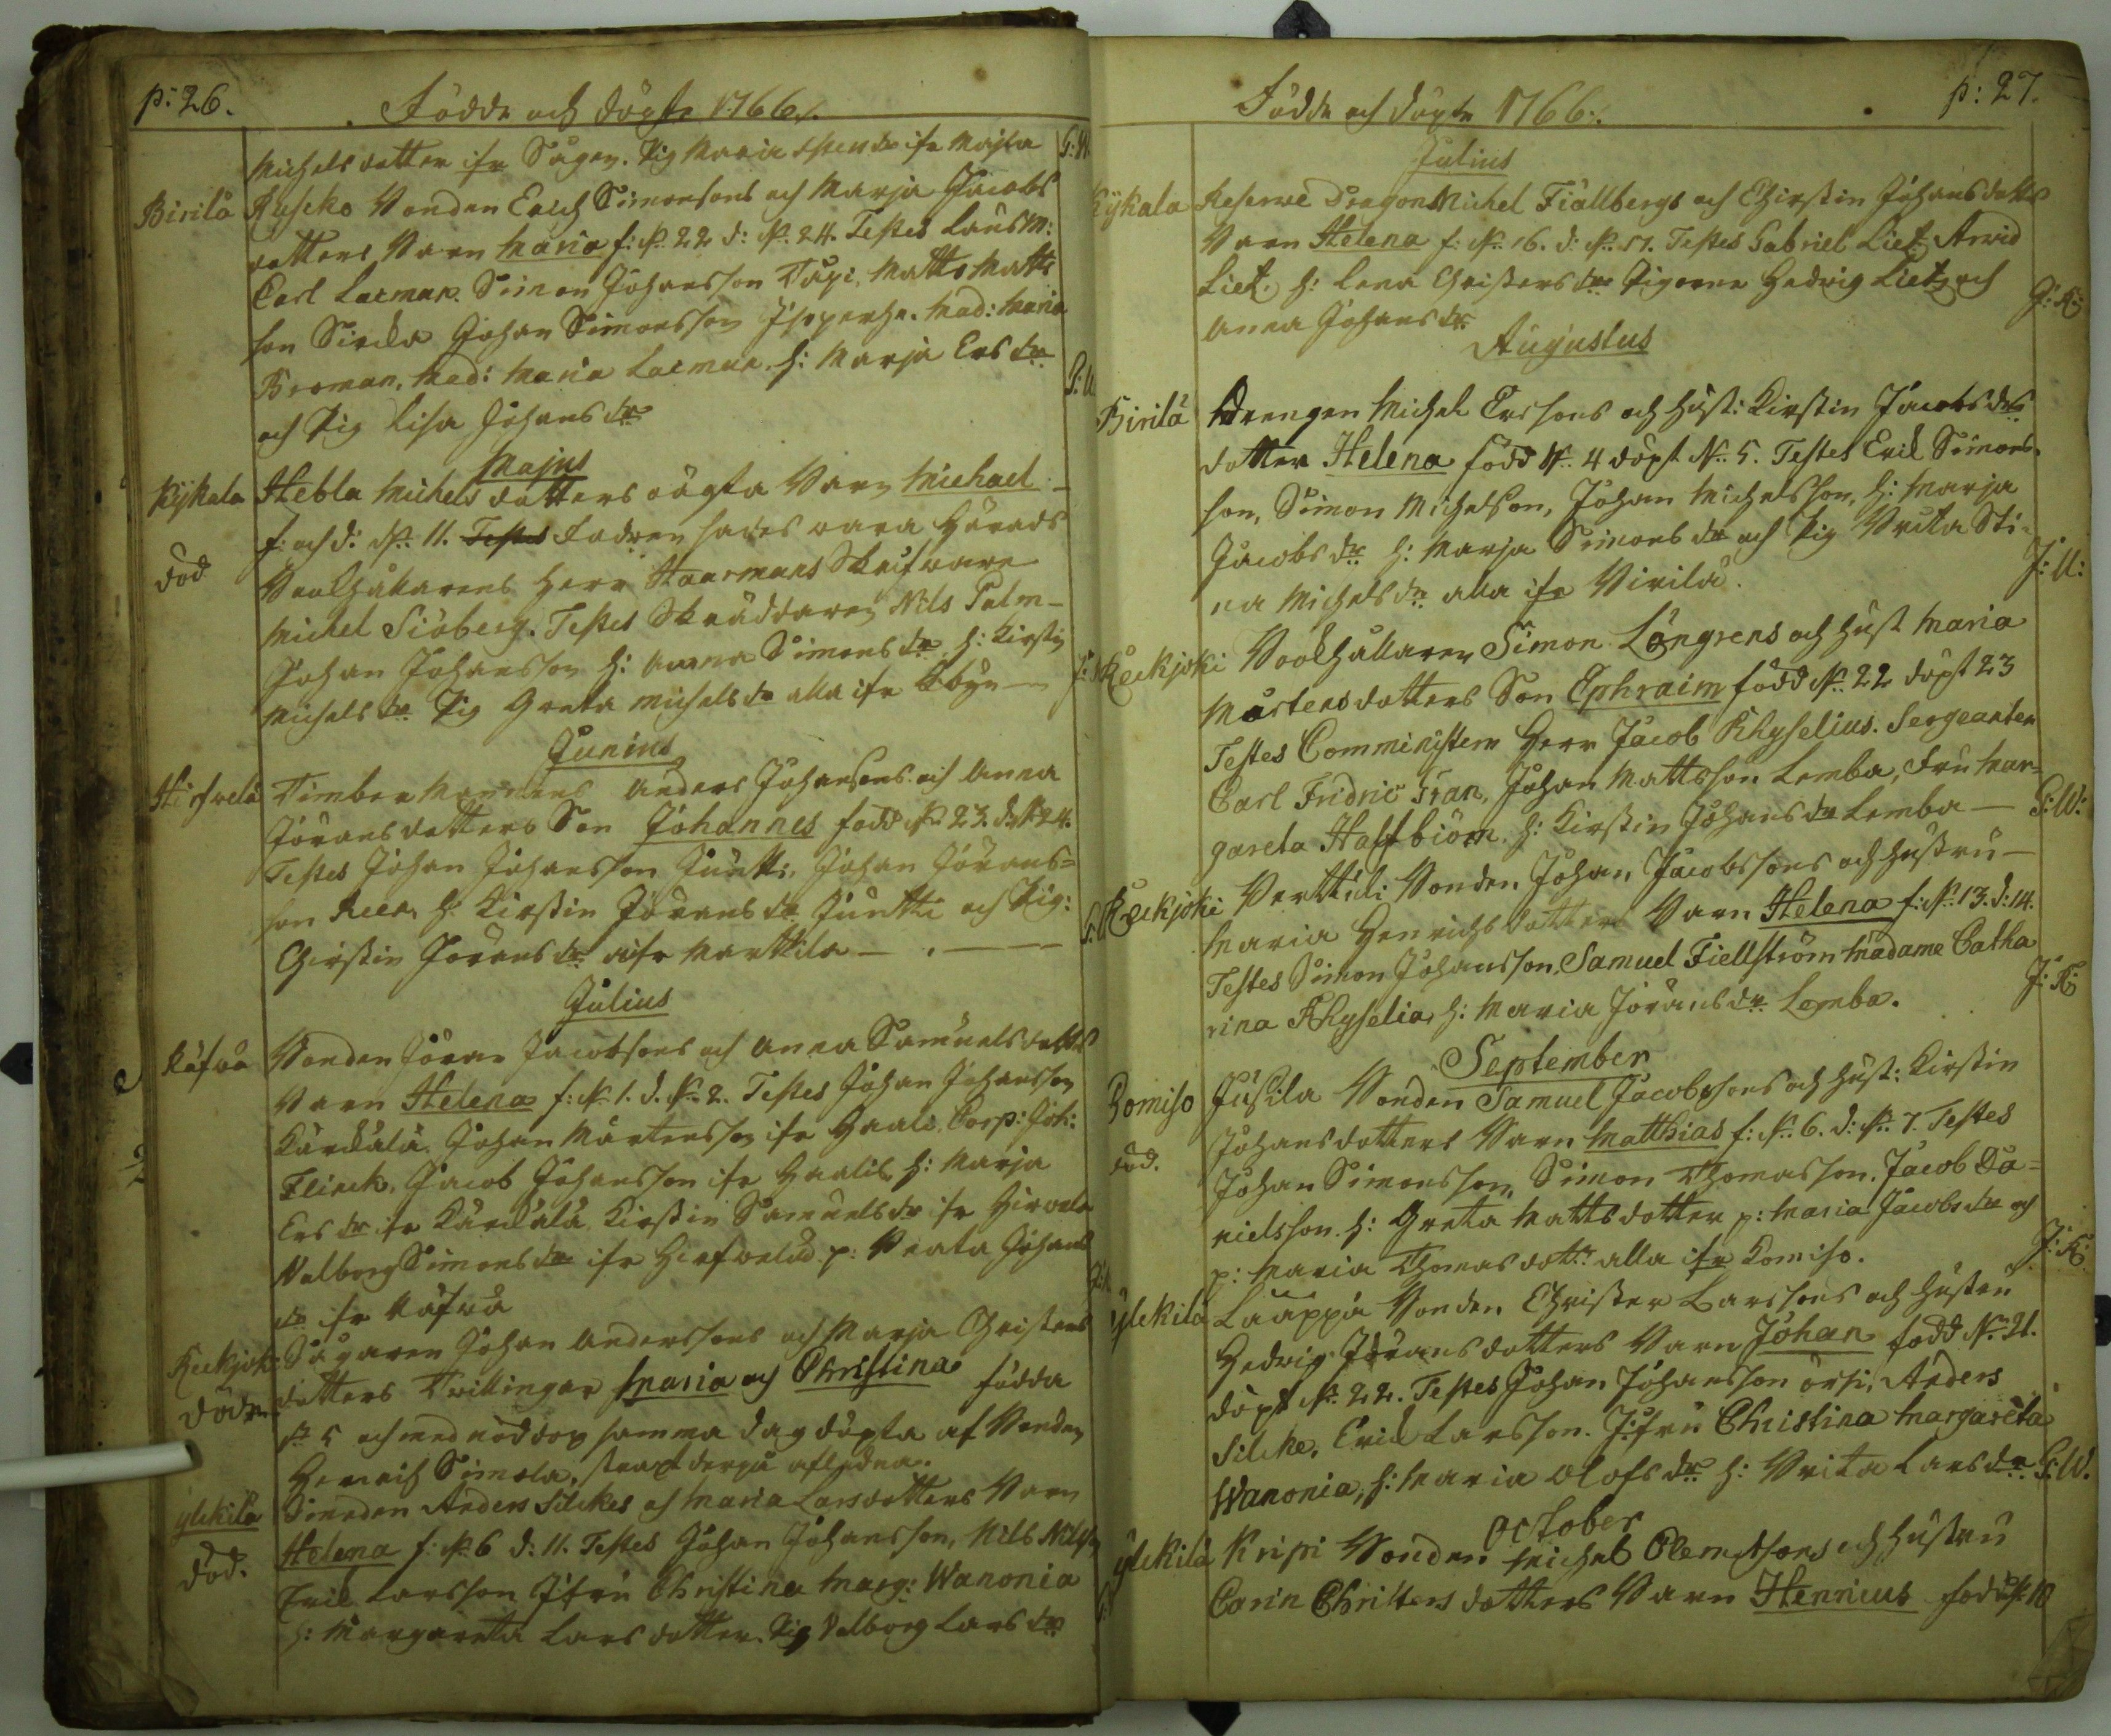 p: 26.
Födde och döpte 1766.
Michels dotter ifr Sågen. Pig Maria Sten dr ifr Majka
G: W.
Birilä Ruscko Bonden Erich Simonsons och Marja Jacobs
dotters Barn Maria f: d. 22 d: d. 24. Testes Länsm:
Carl Lacman. Simon Johansson Tupi, Matts Matts
son Sirila Johan Simonsson Isoperhe. Mad: Maria
Broman, Mad: Maria Lacman. h: Marja Ers dr
G: W
och Pig Lisa Johans dr
Majus
Kykala Hebla Michels dotters oägta Barn Michael
f: och d: d. 11. Testes Fadren sades vara Härads
död
Bokhållarens Herr Haarmans Skrifvare
Michel Siöberg. Testes Skräddaren Nils Palm
Johan Johansson h: Anna Simons dr. h: Kirstin
Michels dr. Pig Greta Michels dr alla ifr Kbyn
Junius
Hirfvelä Timbermannens Anders Johansons och Anna
Jörans dotters Son Johannes född d. 23 d. 24.
Testes Johan Johansson Juntti, Johan Jörans=
son Reen, h: Kirstin Jörans dr Juntti och Pig:
Christin Jörans dr ifr Marttila
Julius
Räfvå Bonden Jöran Jacobsons och Anna Samuels dotters
Barn Helena f: d. 1. d. d. 2. Testes Johan Johansson
Kärdälä. Johan Mårtensson ifr Haali. Corp: Joh:
Flinck, Jacob Johansson ifr Haalis, h: Marja
Ers dr ifr Kärdälä, Kirstin Samuels dr ifr Hirvela
Valborg Simons dr ifr Hirfvelä. p: Beata Johans
dr ifr Räfvå
Keckjoki Sågaren Johan Anderssons och Marja Christers
dotters Twillingar Maria och Christina födda
döda.
d. 5 och med nöddop samma dag döpta af Bonden
Henrich Simola, strax derpå afledna.
ylekilä Smeden Anders Silckes och Maria Lars dotters Barn
Helena f: d. 6 d: 11. Testes Johan Johansson, Nils Nilsson
död.
Erich Larsson Jfru Christina Marg: Wanonia
h: Margareta Lars dotter. Pig Valborg Lars dr
p: 27.
Födde och döpte 1766.
Julius
Kykala Reserve Dragon Michel Fiällbergs och Christin Johans dotters
Barn Helena f: d. 16. d: d. 17. Testes Gabriel Lietz Arvid
Lietz. h: Lena Christers dr Pigorne Hedvig Lietz och
J: K:
Anna Johans dr.
Augustus
Birilä Drengen Michel Ersons och Hust: Kirstin Jacobs drs
dotter Helena född d. 4 döpt d. 5. Testes Erich Simons
son, Simon Michelsson, Johan Michelsson, h: Marja
Jacobs dr h: Marja Simons dr och Pig Brita Sti=
J: U:
na Michels dr alla ifr Birilä.
Keckjoki Bookhållaren Simon Löngrens och Hust Maria
Mårtens dotters Son Ephraim född d. 22 döpt 23
Testes Comministern Herr Jacob Rhyselius. Sergeanten
Carl Fridric Tran, Johan Mattsson Lemba, Fru Mar=
gareta Haffbiörn. h: Kirstin Johans dr Lemba
G: W:
Keckjoki Perttuli Bonden Johan Jacobssons och hustru
Maria Henrichs dotters Barn Helena f: d. 13. d: 14.
Testes Simon Johansson, Samuel Fiellström Madame Catha
rina Rhyselia, h: Maria Jörans dr Lemba.
J: K:
September
Komiso Jussila Bonden Samuel Jacobssons och Hust: Kirstin
Johans dotters Barn Matthias f: d. 6. d: d. 7. Testes
död.
Johan Simonsson, Simon Thomasson, Jacob Da=
nielsson. h: Greta Matts dotter p: Maria Jacobs dr och
J: K:
p: Maria Thomas dott: alla ifr Komiso.
ylekilä Laappa Bonden Christer Larssons och hustru
Hedvig Jörans dotters Barn Johan född d. 21.
döpt d. 22. Testes Johan Johansson örsi, Anders
Silcke, Erich Larsson. Jfru Christina Margareta
Wanonia, h: Maria Olofs dr h: Brita Lars dr
G: W.
October
ylekilä Kripi Bonden Michel Clemetsons och hustru
Carin Christers dotters Barn Henricus född d. 10